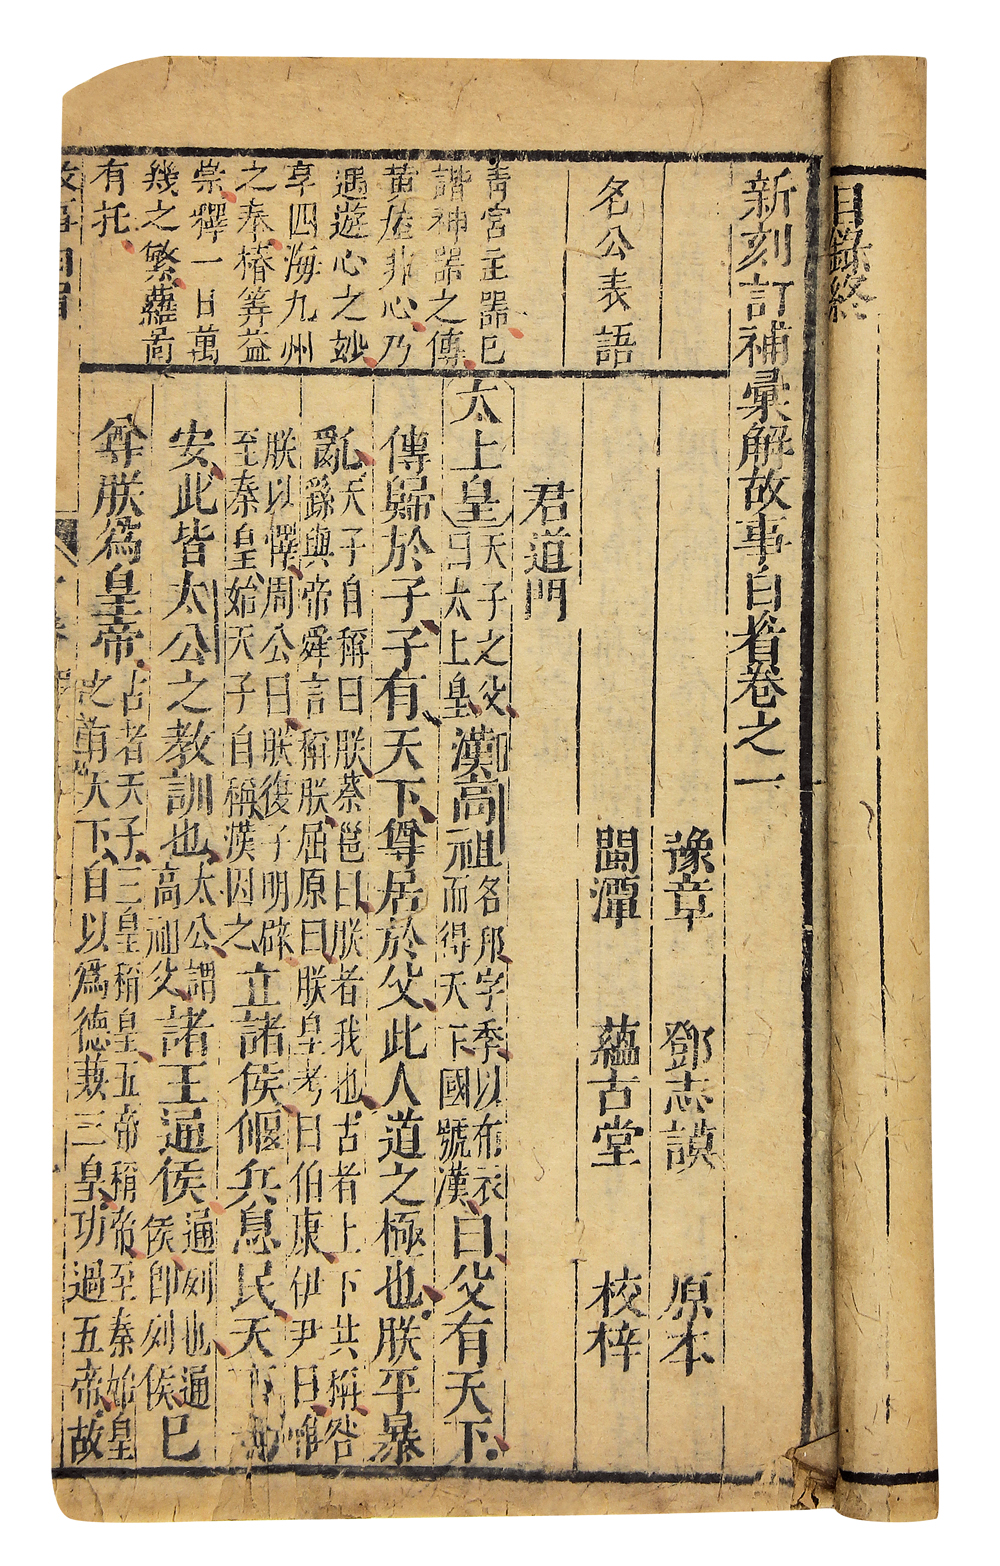 目錄終
新刻訂補彙解故事白眉卷之一
豫章 鄧志謨 原本
閩潭 蘊古堂 校梓
名公表語
青宮主器已
諧神器之傳
黃屋非心乃
遇遊心之妙
享四海九州
之奉椿筭益
崇釋一日萬
幾之繁蘿啚
有托
君道門
太上皇天子之父
曰太上皇漢高祖名邦字季以布衣
而得天下國號漢曰父有天下
傳歸於子子有天下尊居於父此人道之極也朕平暴
亂天子自稱曰朕蔡邕曰朕者我也古者上下共稱咎
繇與帝舜言稱朕屈原曰朕皇考曰伯康伊尹曰惟
朕以懌周公曰朕復子明辟
至秦皇始天子自稱漢因之立諸侯偃兵息民天下
安此皆太公之教訓也太公謂
高祖父諸王通侯通列也通
侯即列侯已
尊朕為皇帝古者天子三皇稱皇五帝稱帝至秦始皇
之首天下自以為德兼三皇功過五帝故